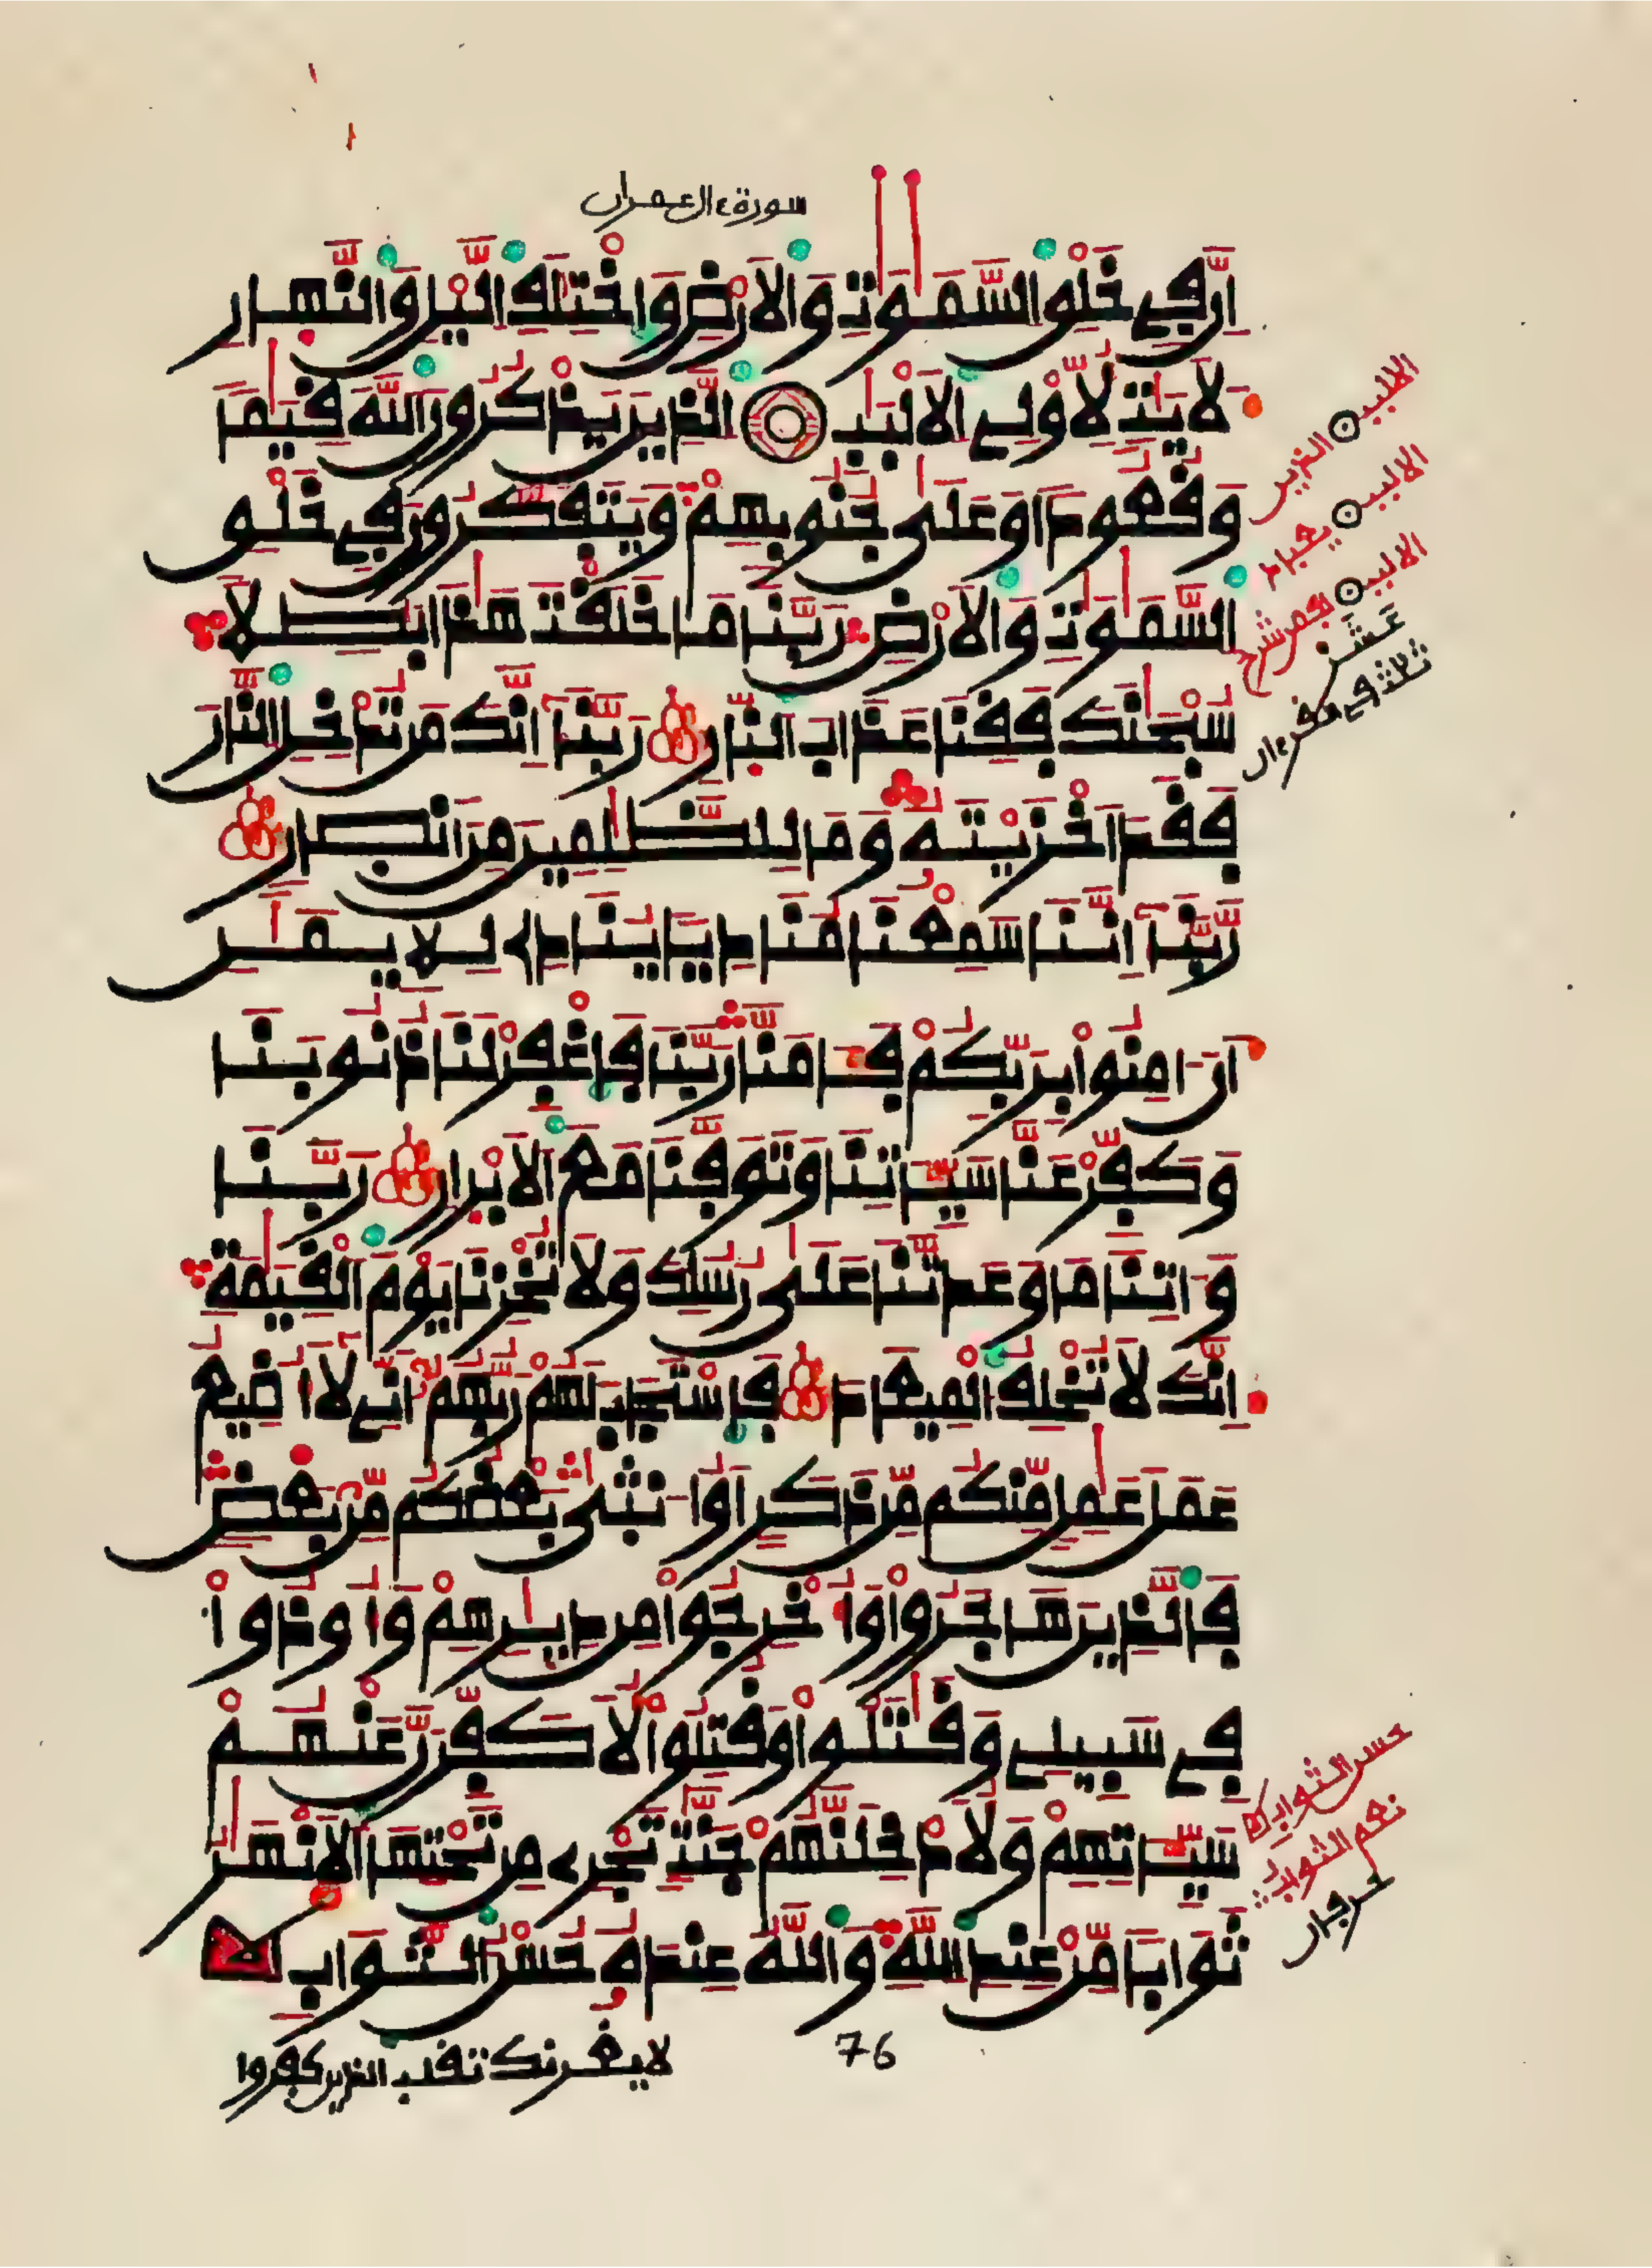 سورة ءال عمران
إِنَّ فِي خَلْقِ السَّمَٰوَٰتِ وَالَارْضِ وَاخْتِلَٰفِ الَّيْلِ وَالنَّهَارِ
لَأَيَٰتٍ لِّأُوْلِي الَالْبَٰبِ الذِينَ يَذْكُرُونَ اللَّهَ قِيَٰمًا
وَقُعُودًا وَعَلَىٰ جُنُوبِهِمْ وَيَتَفَكَّرُونَ فِي خَلْقِ
السَّمَٰوَٰتِ وَالَارْضِ رَبَّنَا مَا خَلَقْتَ هَٰذَا بَٰطِلًا
سُبْحَٰنَكَ فَقِنَا عَذَابَ النَّارِ رَبَّنَا إِنَّكَ مَن تُدْخِلِ النَّارَ
فَقَدَ اخْزَيْتَهُ وَمَا لِلظَّٰلِمِينَ مِنَ انصَارٍ
رَّبَّنَا إِنَّنَا سَمِعْنَا مُنَادِيًا يُنَادِي لِلْإِيمَٰنِ
أَنَ اٰمِنُوا بِرَبِّكُمْ فَـَٔامَنَّا رَبَّنَا فَاغْفِرْ لَنَا ذُنُوبَنَا
وَكَفِّرْ عَنَّا سَيِّـَٔاتِنَا وَتَوَفَّنَا مَعَ الَابْرَارِ رَبَّنَا
وَءَاتِنَا مَا وَعَدتَّنَا عَلَىٰ رُسُلِكَ وَلَا تُخْزِنَا يَوْمَ الْقِيَٰمَةِ
إِنَّكَ لَا تُخْلِفُ الْمِيعَادَ فَاسْتَجَابَ لَهُمْ رَبُّهُمُ أَنِّي لَا أُضِيعُ
عَمَلَ عَٰمِلٍ مِّنكُم مِّن ذَكَرٍ اَوُ انثَىٰ بَعْضُكُم مِّن بَعْضٍ
فَالذِينَ هَاجَرُوا وَأُخْرِجُوا مِن دِيَٰرِهِمْ وَأُوذُوا
فِي سَبِيلِي وَقَٰتَلُوا وَقُتِلُوا لَأُكَفِّرَنَّ عَنْهُمْ
سَيِّـَٔاتِهِمْ وَلَأُدْخِلَنَّهُمْ جَنَّٰتٍ تَجْرِي مِن تَحْتِهَا الَانْهَٰرُ
ثَوَابًا مِّنْ عِندِ اللَّهِ وَاللَّهُ عِندَهُ حُسْنُ الثَّوَابِ
76
لا يغرنك تقلب الذين كفروا
الالبب الذين
الالبب
الالبب
حسن الثواب
نعم الثواب